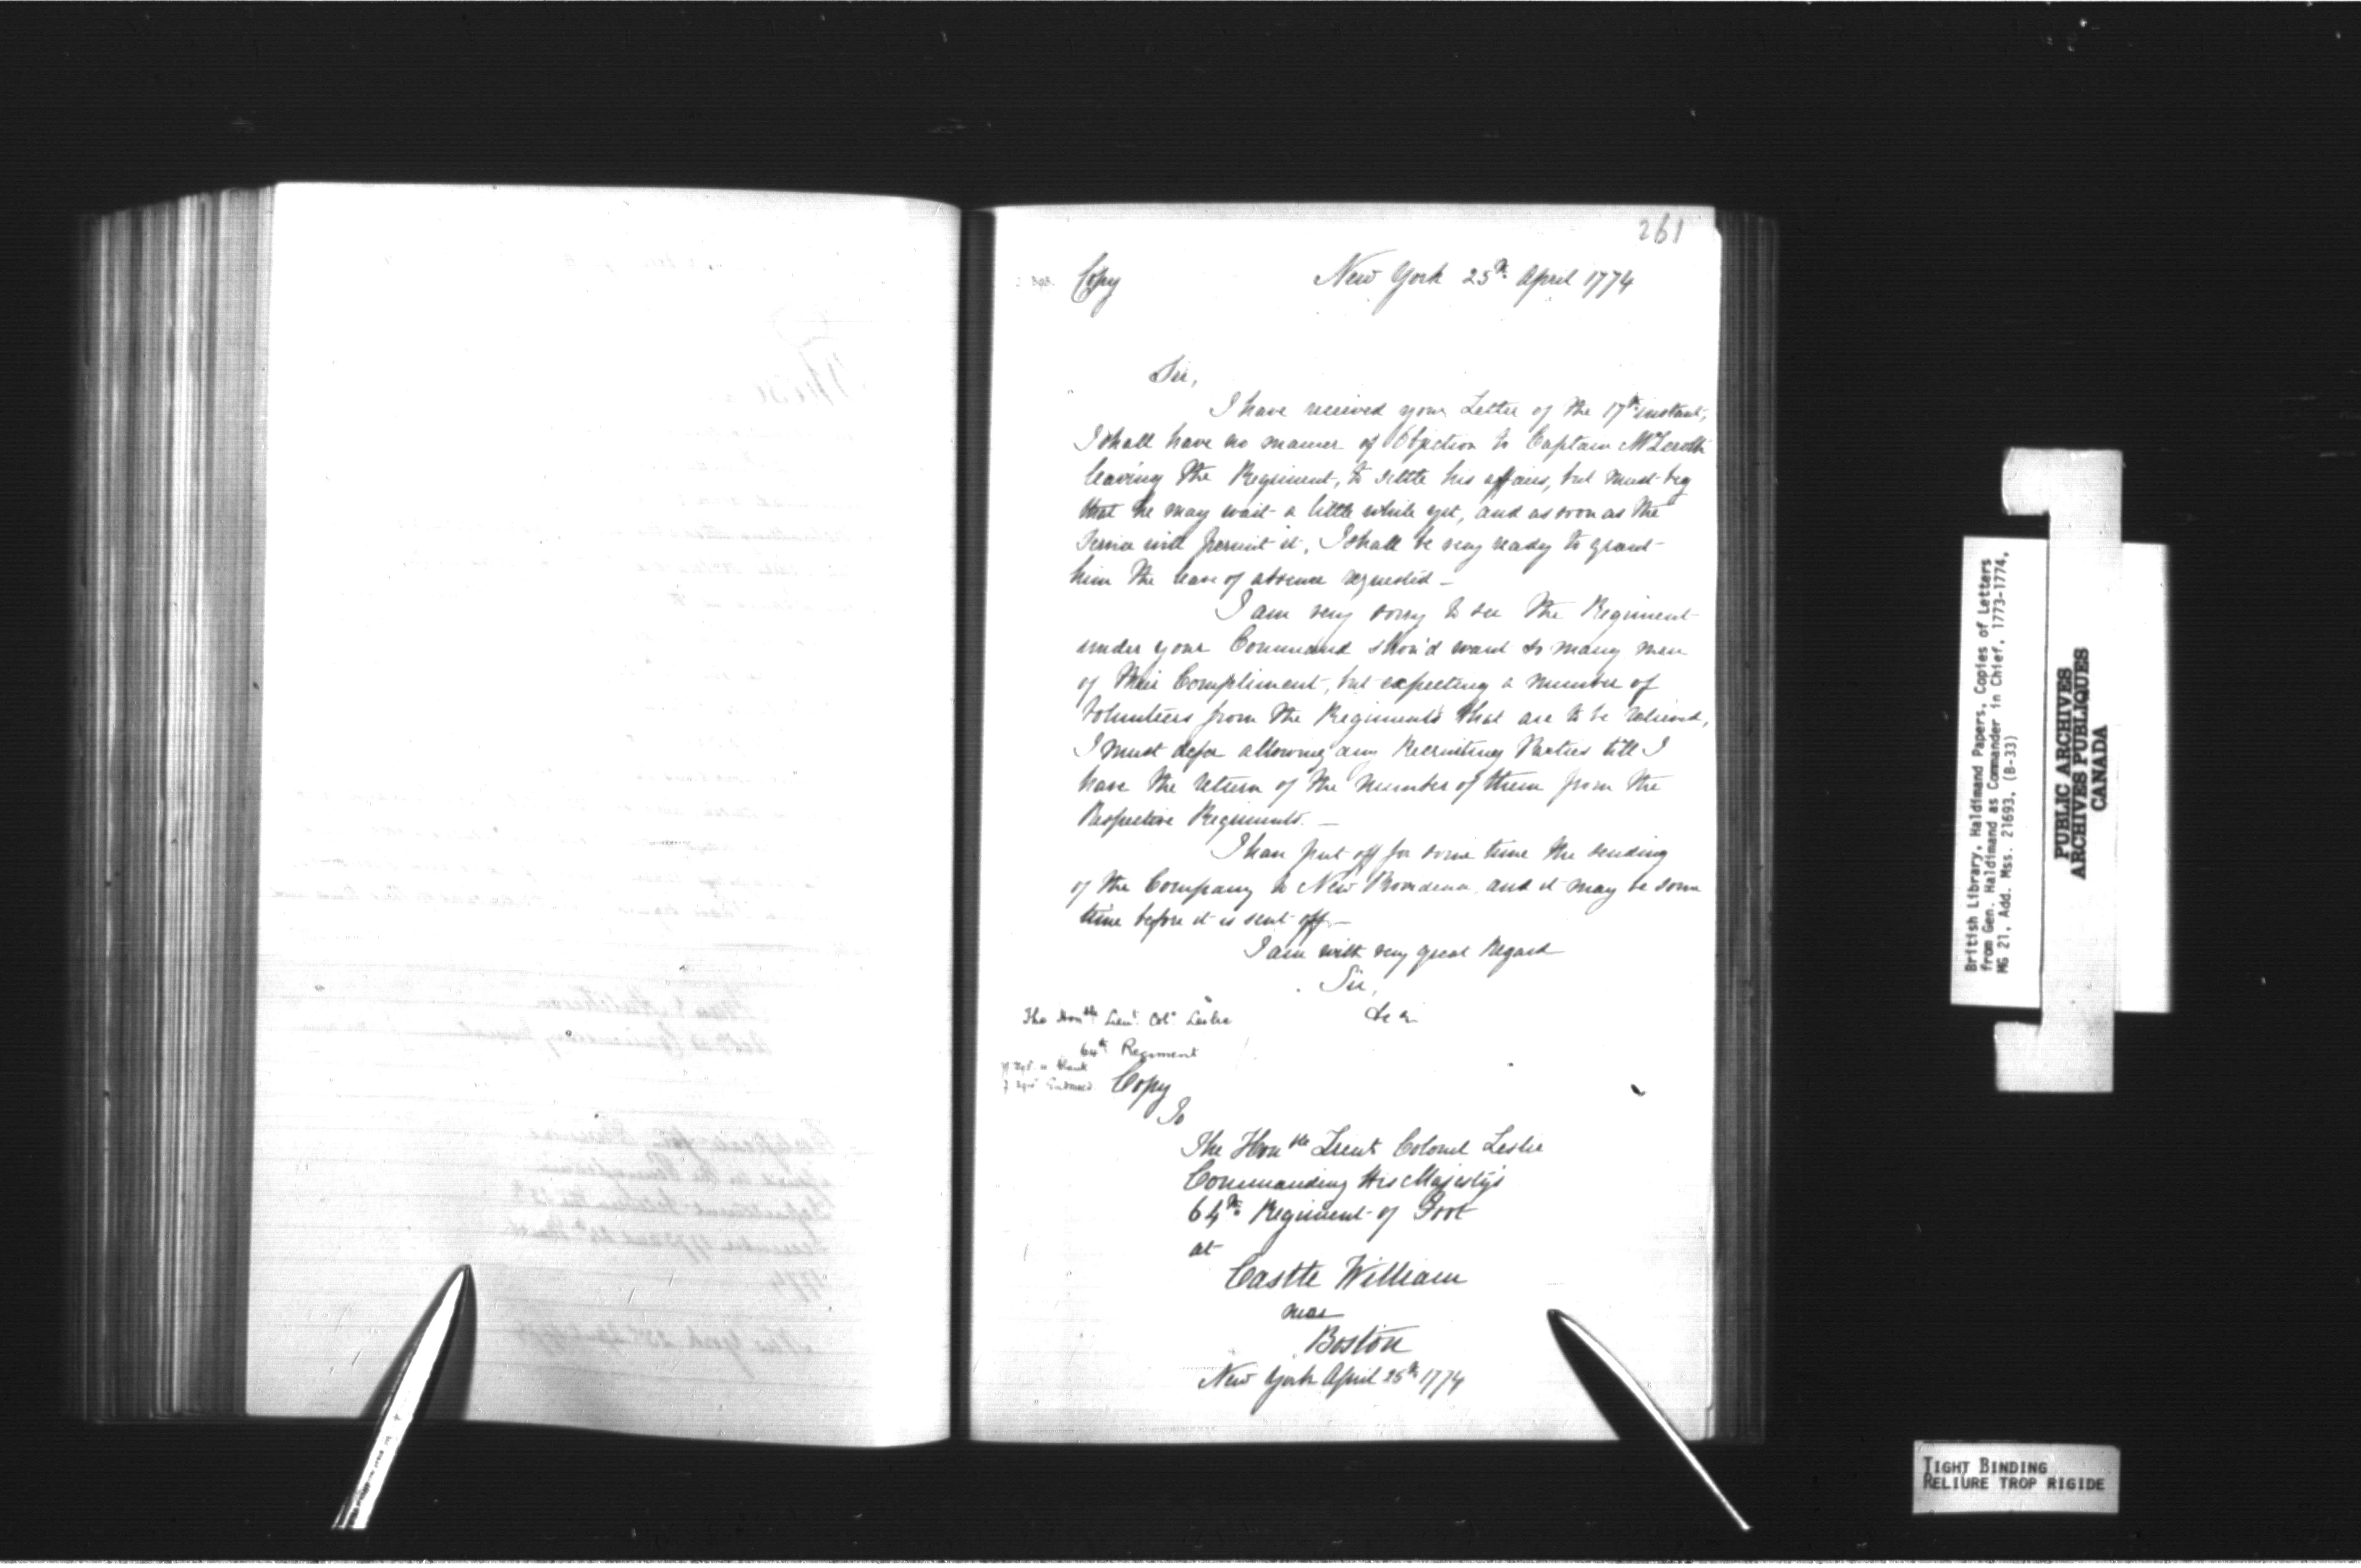 261
Copy
New York 25th. April 1774
Sir,
I have received your Letter of the 17th. instant,
I shall have no manner of Objection to Captain McLeroth
leaving the Regiment, to settle his affairs, but must beg
that he may wait a little while yet, and as soon as the
Service will permit it, I shall be very ready to grant
him the leave of absence requested –
I am very sorry to see the Regiment
under your Command shou'd want so many men
of their Compliment, but expecting a number of
Volunteers from the Regiments that are to be relieved,
I must defer allowing any Recruiting Parties till I
have the return of the number of them from the
Respective Regiments. –
I have put off for some time the sending
of the Company to New Providence and it may be some
time before it is sent off –
I am with very great Regard
Sir,
&c &c
The Honble Lieut. Colo. Leslie
64th Regiment
is blank
Endorsed
Copy
To
The Honble Lieut Colonel Leslie
Commanding His Majesty's
64th. Regiment of Foot
at
Castle William
near
Boston
New York April 25th 1774
British Library, Haldimand Papers, Copies of Letters
from Gen. Haldimand as Commander in Chief, 1773-1774,
MG 21, Add. Mss. 21693, (B-33)
PUBLIC ARCHIVES
ARCHIVES PUBLIQUES
CANADA
TIGHT BINDING
RELIURE TROP RIGIDE